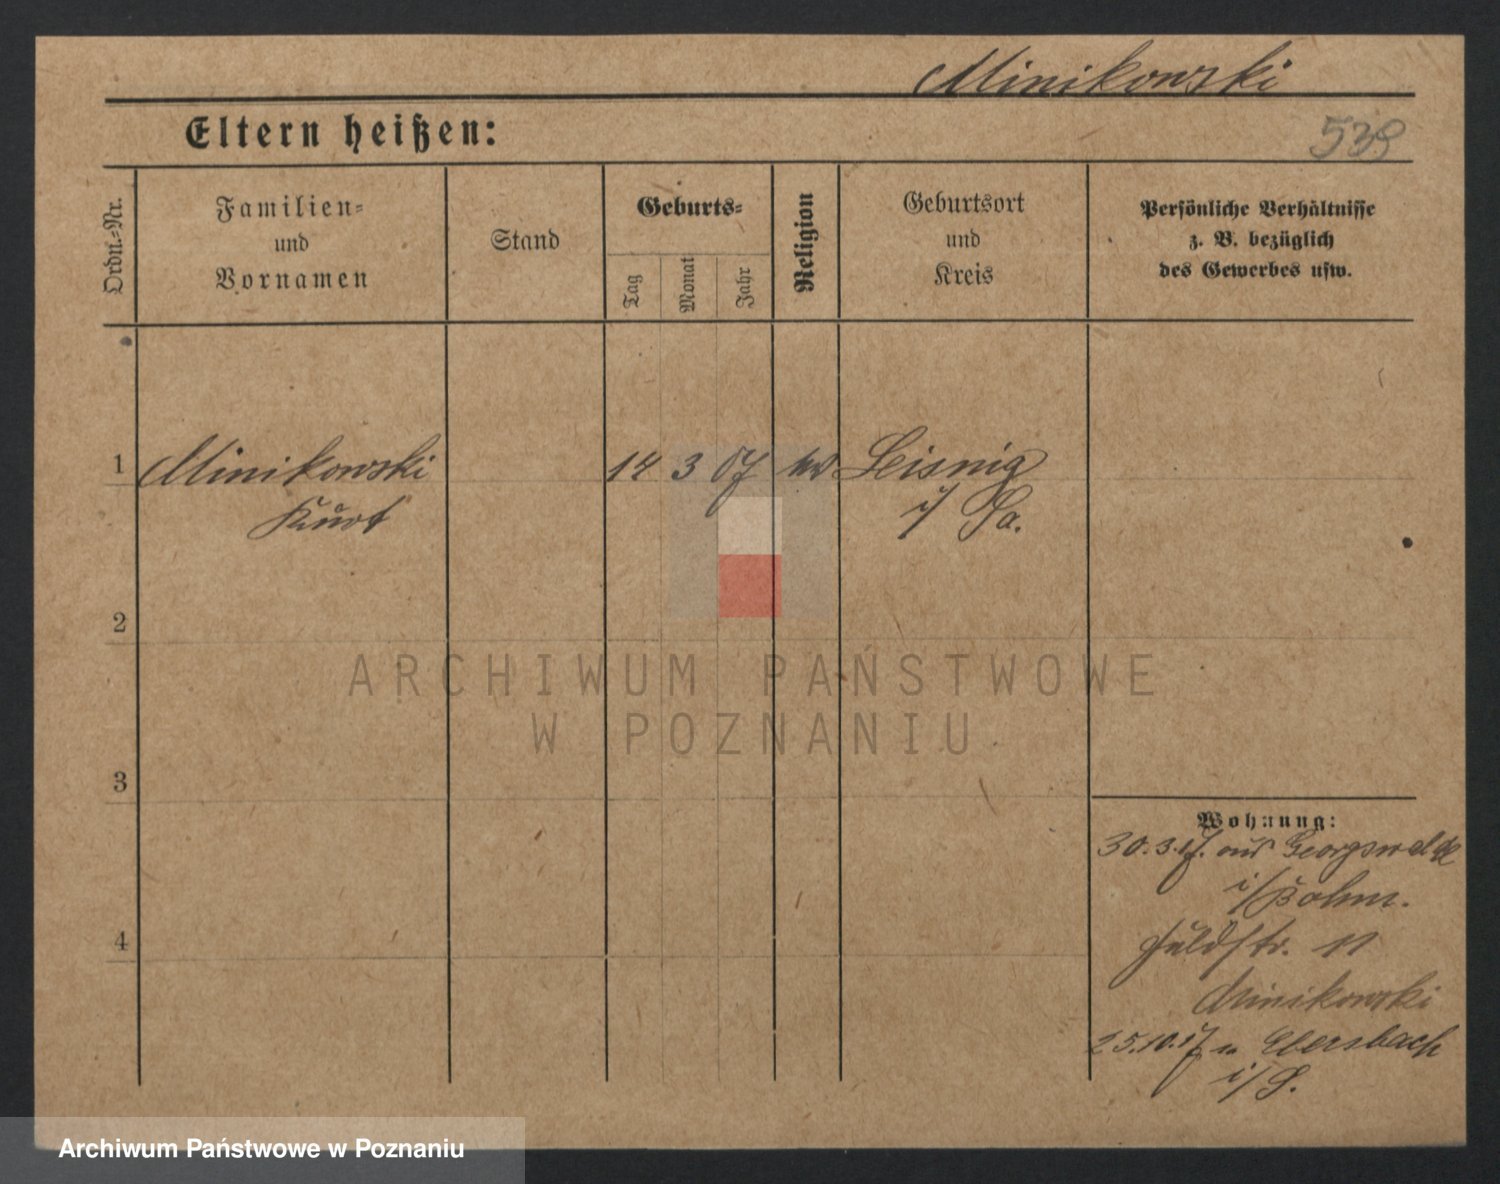 Minikowski
Eltern heißen:
539
Ordn.-Nr.
Familien-
und
Vornamen
Stand
Geburts-
Tag
Monat
Jahr
Religion
Geburtsort
und
Kreis
Persönliche Verhältnisse
z. B. bezüglich
des Gewerbes usw.
1 Minikowski 14 3 07 Leisnig
Kurt i/ Sa.
2
3
4
Wohnung:
30.3.17. aus Georgswalde
i/Böhm.
str. 11
Minikowski
25.10.17 n. Ebersbach
i/S.
ARCHIWUM PAŃSTWOWE
W POZNANIU
Archiwum Państwowe w Poznaniu